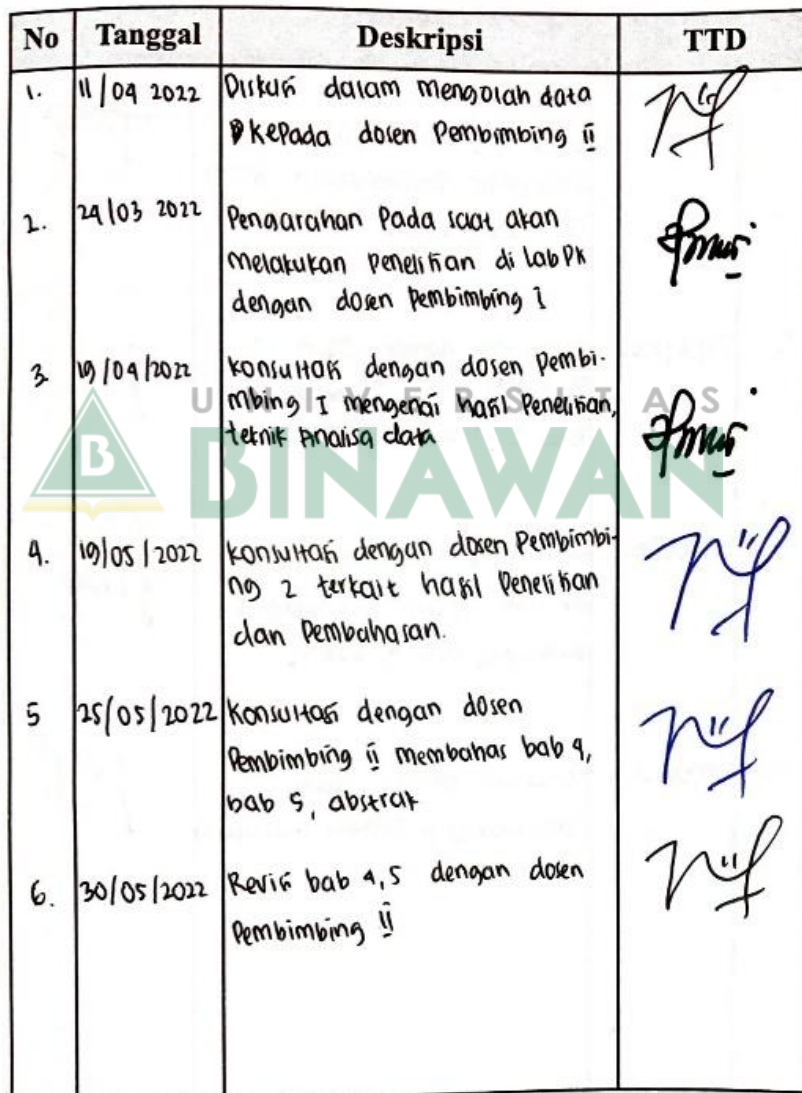 No Tanggal Deskripsi TTD
1. 11/04 2022 Diskusi dalam mengolah data
kepada dosen Pembimbing ii
2. 24/03 2022 Pengarahan Pada saat akan
melakukan Penelitian di lab Pk
dengan dosen Pembimbing I
3. 19/04/2022 konsultasi dengan dosen Pembi-
mbing I mengenai hasil Penelitian,
teknik Analisa data
UNIVERSITAS
BINAWAN
B
4. 19/05/2022 konsultasi dengan dosen Pembimbi-
ng 2 terkait hasil Penelitian
dan Pembahasan.
5 25/05/2022 Konsultasi dengan dosen
Pembimbing ii membahas bab 4,
bab 5, abstrak
6. 30/05/2022 Revisi bab 4,5 dengan dosen
Pembimbing ii